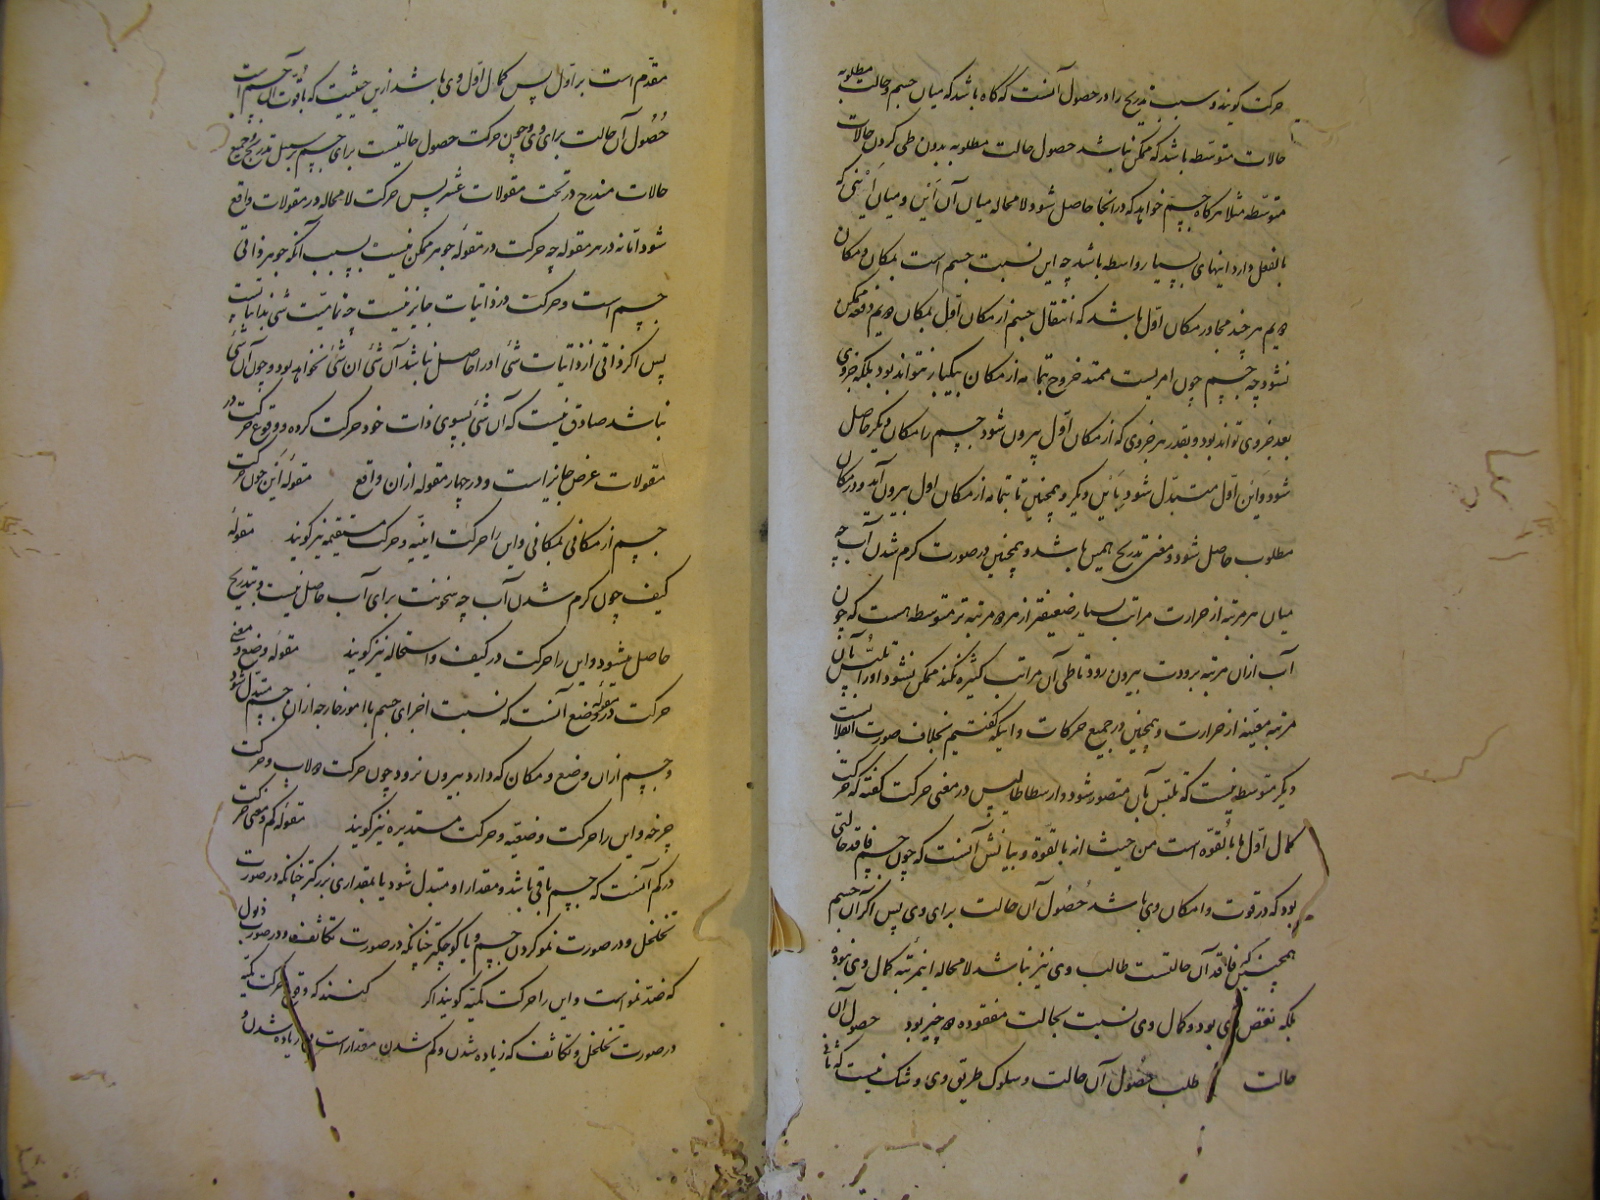 حرکت کویند و سبب تدریج را در حصول آنست که کاه باشد که میان جسم و حالت مطلوبه
حالات متوسّطه باشد که ممکن نباشد حصول حالت مطلوبه بدون طی کردن حالات
متوسّطه مثلا هرکاه جسم خواهد که در انجا حاصل شود لا محاله میان آن این و میان اینی که
بالفعل دارد اینهای بسیار واسطه باشد چه این نسبت جسم است بمکان و مکان
دویم هر چند مجاور مکان اوّل باشد که انتقال جسم از مکان اوّل بمکان دویم دفعة ممکن
نشود چه جسم چون امریست ممتد خروج تمامه از مکان بیکبار نتواند بود بلکه جزوی
بعد جزوی تواند بود و بقدر هر جزوی که از مکان اوّل بیرون شود جسم را مکان دیکر حاصل
شود و این اوّل متبدّل شود باین دیکر و همچنین تا بتمامه از مکان اول بیرون آید و در مکان
مطلوب حاصل شود و معنی تدریج همین باشد و همچنین در صورت کرم شدن آب چه
میان هر مرتبه از حرارت مراتب بسیار ضعیفتر از مرتبه متوسطه هست که چون
آب ازان مرتبه برودت بیرون رود تا طی آن مراتب کثیره نکند ممکن نشود او را تلبّس بآن
مرتبه معیّنه از حرارت و همچنین در جمیع حرکات و اینکه کفتیم بخلاف صورت انقلابست
دیکر متوسطه نیست که تلبّس بآن متصور شود و ارسطاطالیس در معنی حرکت کفته که حرکت
کمال اوّل ما بالقوّه است من حیث انه بالقوّة و بیانش آنست که چون جسم فاقد حالتی
بود که در قوت و امکان وی باشد حُصول آن حالت برای وی پس اکر آن جسم
همچنین که فاقد آن حالتست طالب وی نیز نباشد لا محاله اینمرتبه کمال وی نبوده
بلکه نقص وی بود و کمال وی نسبت بحالت مفقوده دو چیز بود حصول آن
حالت طلب حُصول آن حالت و سلوک طریق وی و شک نیست که ثانی
مقدّم است بر اوّل پس کمال اوّل وی باشد ازین حیثیت که بالقوت آن جسم است
حُصول آن حالت برای وی و چون حرکت حصول حالتیست برای جسم بر سبیل تدریج و جمیع
حالات مندرج در تحت مقولات عشر پس حرکت لا محاله در مقولات واقع
شود امّا نه در هر مقوله چه حرکت در مقوله جوهر ممکن نیست بسبب آنکه جوهر ذاتی
جسم است و حرکت در ذاتیات جایز نیست چه تمامیّت شئ بذاتیاتست
پس اکر ذاتی از ذاتیات شئ او را حاصل نباشد آن شئ ان شئ نخواهد بود و چون آن شئ
نباشد صادق نیست که آن شئ بسوی ذات خود حرکت کرده و وقوع حرکت در
مقولات عرض جایز است و در چهار مقوله ازان واقع مقوله این چون حرکت
جسم از مکانی بمکانی و این را حرکت اینیّه و حرکت مستقیمه نیز کویند مقوله
کیف چون کرم شدن آب چه سخونت برای آب حاصل نیست و بتدریج
حاصل میشود و این را حرکت در کیف و استحاله نیز کویند مقوله وضع و معنی
حرکت در مقوله وضع آنست که نسبت اجزای جسم با امور خارجه ازان جسم متبدّل شود
و جسم ازان وضع و مکان که دارد بیرون نرود چون حرکت دولاب و حرکت
چرخ و این را حرکت وضعیّه و حرکت مستدیره نیز کویند مقوله کم و معنی حرکت
در کم آنست که جسم باقی باشد و مقدار او متبدل شود یا بمقداری بزرکتر چنانکه در صورت
تخلخل و در صورت نمو کردن جسم و یا کوچکتر چنانکه در صورت تکاثف و در صورت ذبول
که ضدّ نمو است و این را حرکت کمّیه کویند اکر کنند که وقوع حرکت کمّیه
در صورت تخلخل و تکاثف که زیاده شدن و کم شدن مقدار است زیاده شدن و